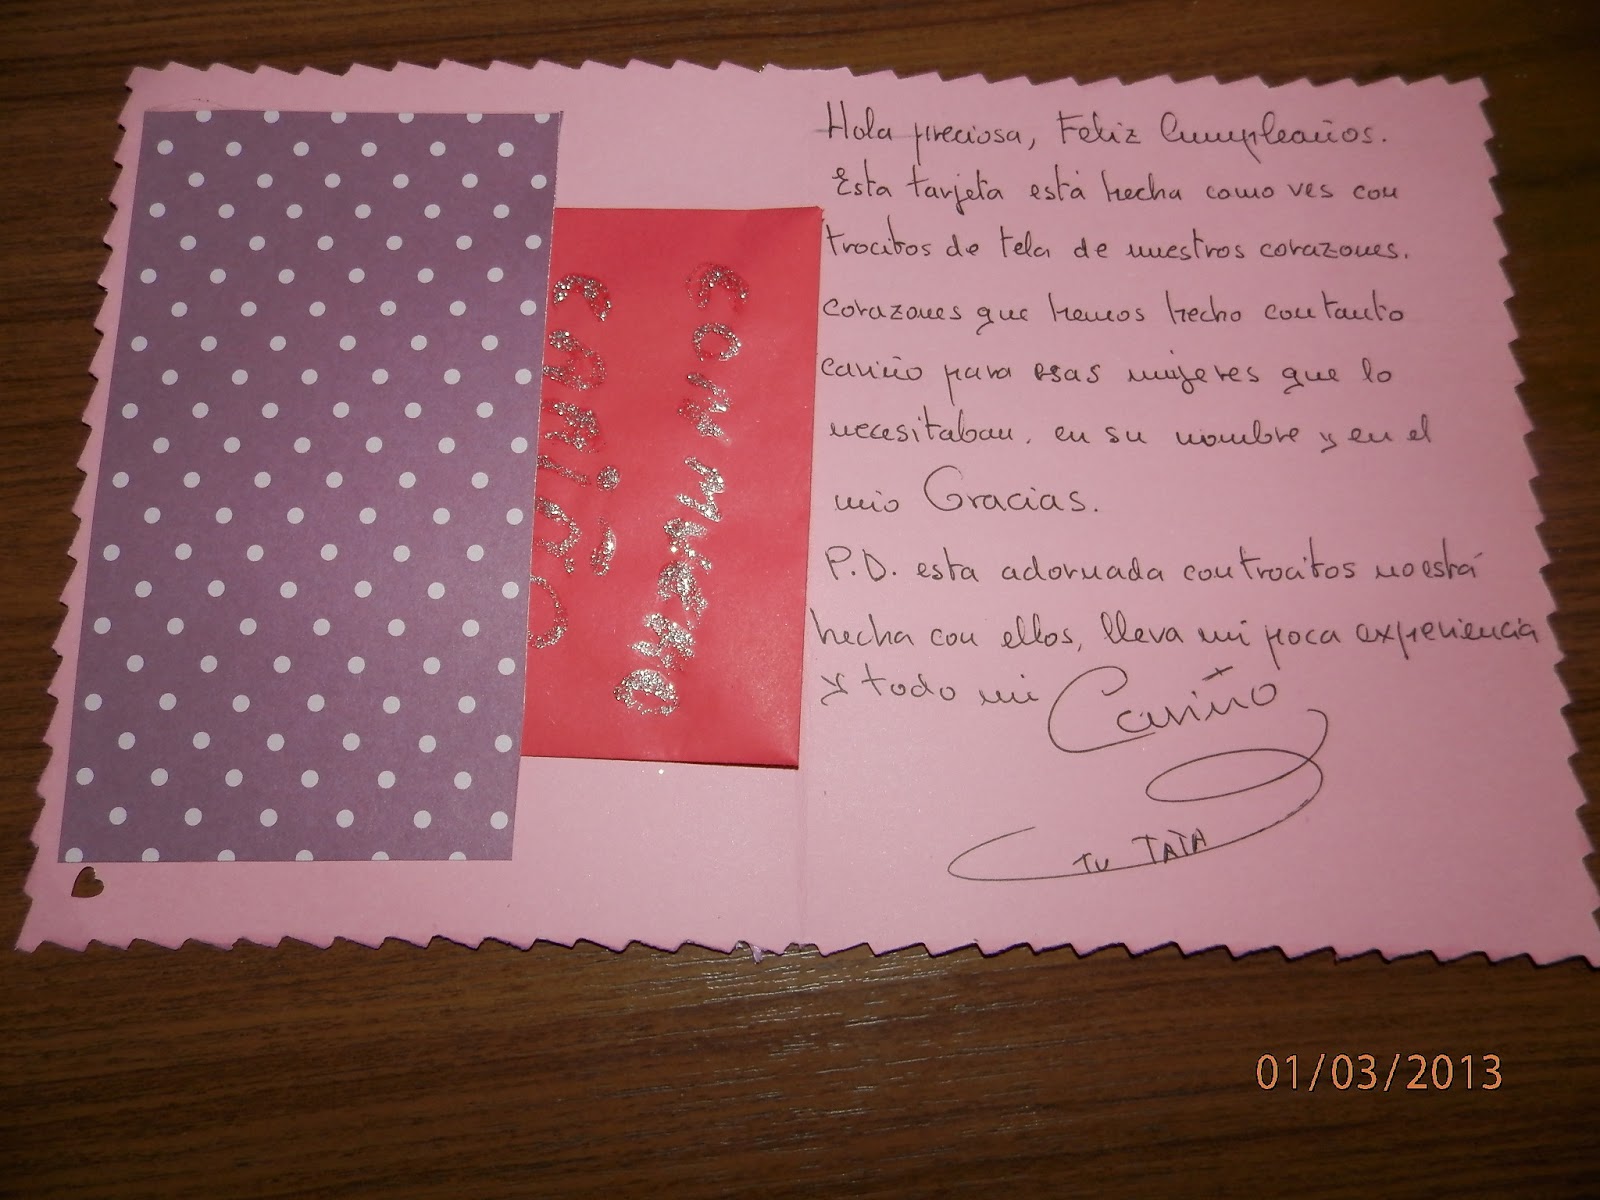 con mucho
cariño
Hola preciosa, Feliz Cumpleaños.
Esta tarjeta está hecha como ves con
trocitos de tela de nuestros corazones.
corazones que hemos hecho con tanto
cariño para esas mujeres que lo
necesitaban, en su nombre y en el
mio Gracias.
P.D. esta adornada con trocitos no está
hecha con ellos, lleva mi poca experiencia
y todo mi Cariño
TU TATA
01/03/2013